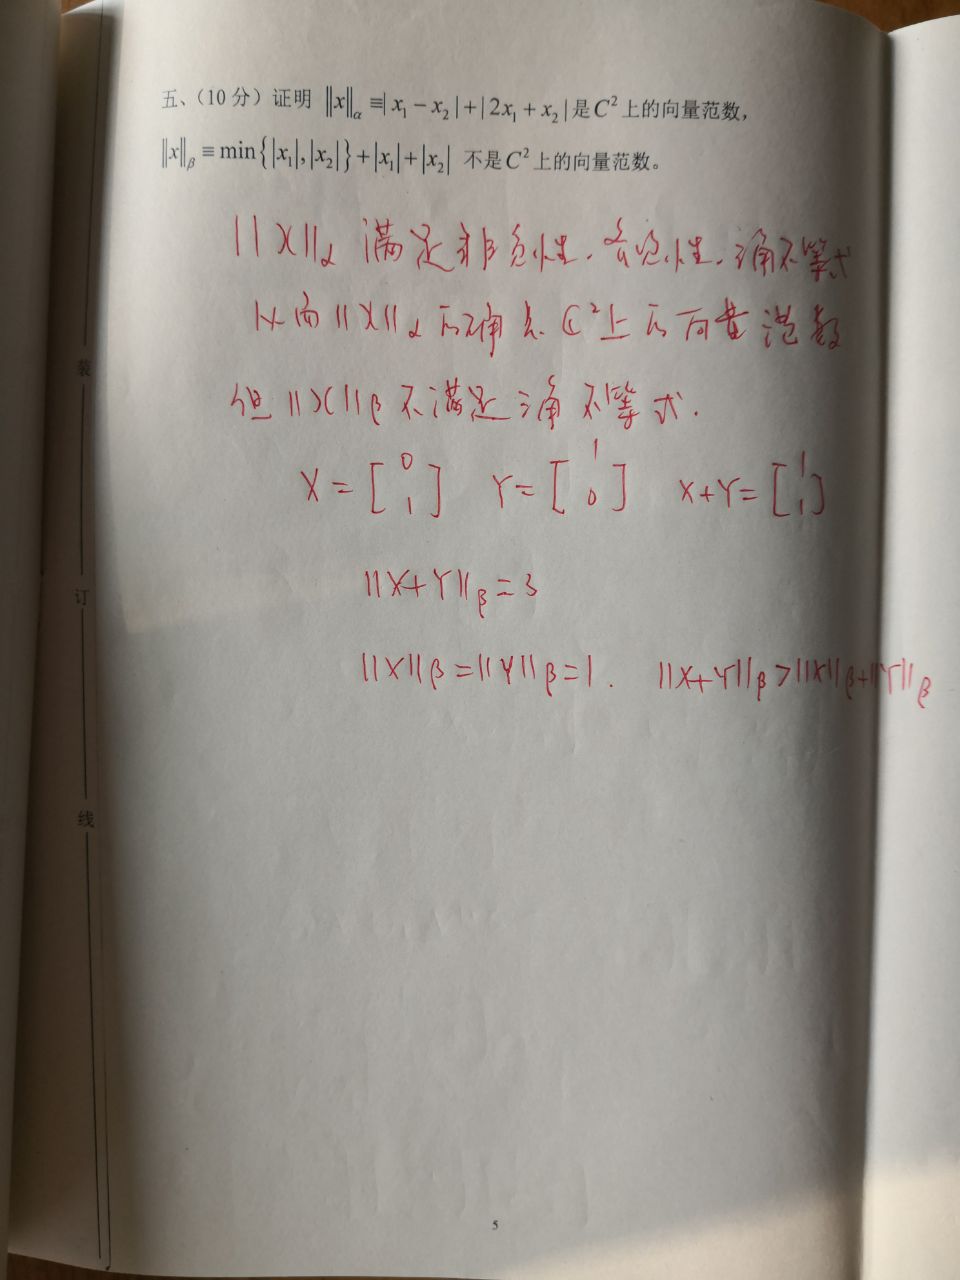 五、（10 分）证明 ‖x‖α ≡| x₁ − x₂ | + | 2x₁ + x₂ | 是 C² 上的向量范数，
‖x‖β ≡ min{|x₁|,|x₂|}+|x₁|+|x₂| 不是 C² 上的向量范数。
||X||α 满足非负性、齐次性、三角不等式
从而 ||X||α 的确是 C² 上的向量范数
但 ||X||β 不满足三角不等式.
X = [0 1] Y = [1 0] X+Y = [1 1]
||X+Y||β = 3
||X||β = ||Y||β = 1. ||X+Y||β > ||X||β + ||Y||β
装
订
线
5